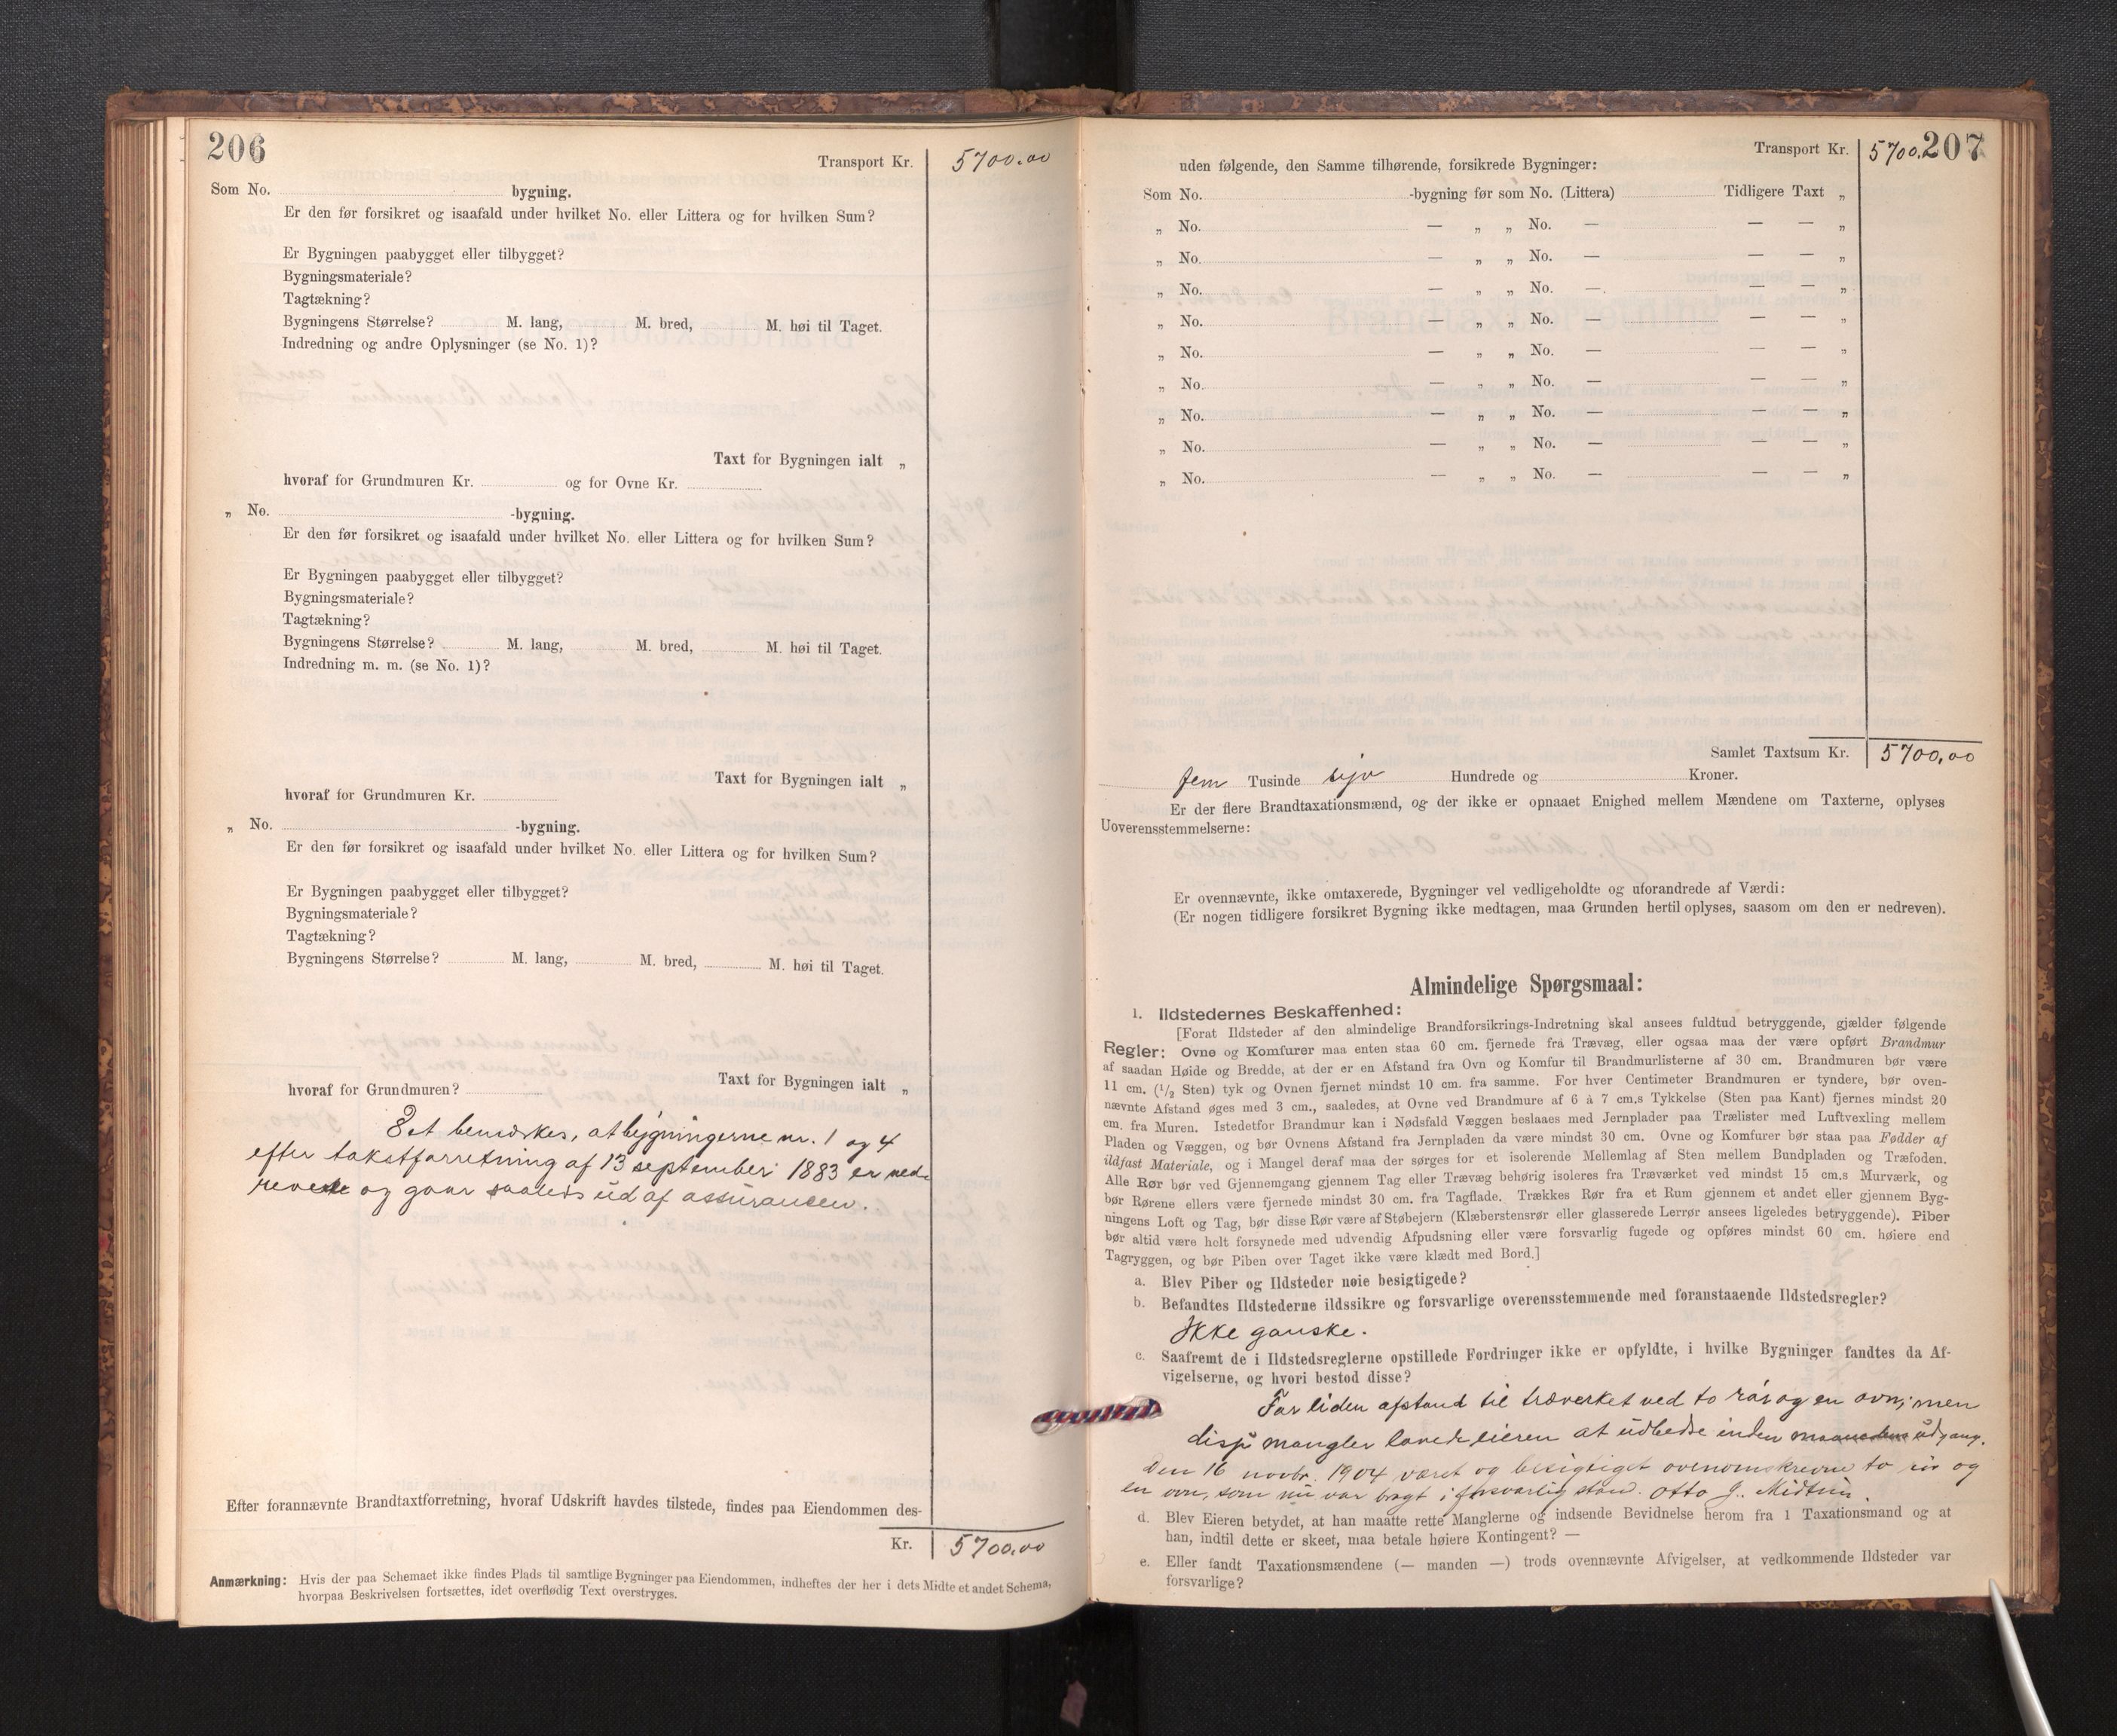 206
Transport Kr. 5700.00
Som No. bygning.
Er den før forsikret og isaafald under hvilket No. eller Littera og for hvilken Sum?
Er Bygningen paabygget eller tilbygget?
Bygningsmateriale?
Tagtækning?
Bygningens Størrelse? M. lang, M. bred, M. høi til Taget.
Indredning og andre Oplysninger (se No. 1)?
Taxt for Bygningen ialt „
hvoraf for Grundmuren Kr. og for Ovne Kr.
„ No. -bygning.
Er den før forsikret og isaafald under hvilket No. eller Littera og for hvilken Sum?
Er Bygningen paabygget eller tilbygget?
Bygningsmateriale?
Tagtækning?
Bygningens Størrelse? M. lang, M. bred, M. høi til Taget.
Indredning m. m. (se No. 1)?
Taxt for Bygningen ialt „
hvoraf for Grundmuren Kr.
„ No. -bygning.
Er den før forsikret og isaafald under hvilket No. eller Littera og for hvilken Sum?
Er Bygningen paabygget eller tilbygget?
Bygningsmateriale?
Tagtækning?
Bygningens Størrelse? M. lang, M. bred, M. høi til Taget.
Taxt for Bygningen ialt „
hvoraf for Grundmuren?
Det bemærkes, at bygningerne nr. 1 og 4
efter takstforretning af 13 september 1883 er ned-
revne og gaar saaledes ud af assurancen.
Efter forannævnte Brandtaxtforretning, hvoraf Udskrift havdes tilstede, findes paa Eiendommen des-
Kr. 5700.00
Anmærkning: Hvis der paa Schemaet ikke findes Plads til samtlige Bygninger paa Eiendommen, indheftes der her i dets Midte et andet Schema,
hvorpaa Beskrivelsen fortsættes, idet overflødig Text overstryges.
207
Transport Kr. 5700.
uden følgende, den Samme tilhørende, forsikrede Bygninger:
Som No. -bygning før som No. (Littera) Tidligere Taxt „
„ No. — „ „ No. — — — „
„ No. — „ „ No. — — — „
„ No. — „ „ No. — — — „
„ No. — „ „ No. — — — „
„ No. — „ „ No. — — — „
„ No. — „ „ No. — — — „
„ No. — „ „ No. — — — „
„ No. — „ „ No. — — — „
„ No. — „ „ No. — — — „
Samlet Taxtsum Kr. 5700,00
fem Tusinde syv Hundrede og Kroner.
Er der flere Brandtaxationsmænd, og der ikke er opnaaet Enighed mellem Mændene om Taxterne, oplyses
Uoverensstemmelserne:
Er ovennævnte, ikke omtaxerede, Bygninger vel vedligeholdte og uforandrede af Værdi:
(Er nogen tidligere forsikret Bygning ikke medtagen, maa Grunden hertil oplyses, saasom om den er nedreven).
Almindelige Spørgsmaal:
1. Ildstedernes Beskaffenhed:
[Forat Ildsteder af den almindelige Brandforsikrings-Indretning skal ansees fuldtud betryggende, gjælder følgende
Regler: Ovne og Komfurer maa enten staa 60 cm. fjernede fra Trævæg, eller ogsaa maa der være opført Brandmur
af saadan Høide og Bredde, at der er en Afstand fra Ovn og Komfur til Brandmurlisterne af 30 cm. Brandmuren bør være
11 cm. (1/2 Sten) tyk og Ovnen fjernet mindst 10 cm. fra samme. For hver Centimeter Brandmuren er tyndere, bør oven-
nævnte Afstand øges med 3 cm., saaledes, at Ovne ved Brandmure af 6 à 7 cm.s Tykkelse (Sten paa Kant) fjernes mindst 20
cm. fra Muren. Istedetfor Brandmur kan i Nødsfald Væggen beslaaes med Jernplader paa Trælister med Luftvexling mellem
Pladen og Væggen, og bør Ovnens Afstand fra Jernpladen da være mindst 30 cm. Ovne og Komfurer bør staa paa Fødder af
ildfast Materiale, og i Mangel deraf maa der sørges for et isolerende Mellemlag af Sten mellem Bundpladen og Træfoden.
Alle Rør bør ved Gjennemgang gjennem Tag eller Trævæg behørig isoleres fra Træværket ved mindst 15 cm.s Murværk, og
bør Rørene ellers være fjernede mindst 30 cm. fra Tagflade. Trækkes Rør fra et Rum gjennem et andet eller gjennem Byg-
ningens Loft og Tag, bør disse Rør være af Støbejern (Klæberstensrør eller glasserede Lerrør ansees ligeledes betryggende). Piber
bør altid være helt forsynede med udvendig Afpudsning eller være forsvarlig fugede og opføres mindst 60 cm. høiere end
Tagryggen, og bør Piben over Taget ikke være klædt med Bord.]
a. Blev Piber og Ildsteder nøie besigtigede?
b. Befandtes Ildstederne ildssikre og forsvarlige overensstemmende med foranstaaende Ildstedsregler?
Ikke ganske.
c. Saafremt de i Ildstedsreglerne opstillede Fordringer ikke er opfyldte, i hvilke Bygninger fandtes da Af-
vigelserne, og hvori bestod disse?
For liden afstand til træverket ved to rør og en ovn; men
disse mangler lovede eieren at udbedre inden maanedens udgang.
Den 16 novbr. 1904 været og besigtiget ovenomskrevne to rør og
en ovn, som nu var bragt i forsvarlig stand. Otto J. Midtun.
d. Blev Eieren betydet, at han maatte rette Manglerne og indsende Bevidnelse herom fra 1 Taxationsmand og at
han, indtil dette er skeet, maa betale høiere Kontingent? —
e. Eller fandt Taxationsmændene (— manden —) trods ovennævnte Afvigelser, at vedkommende Ildsteder var
forsvarlige?